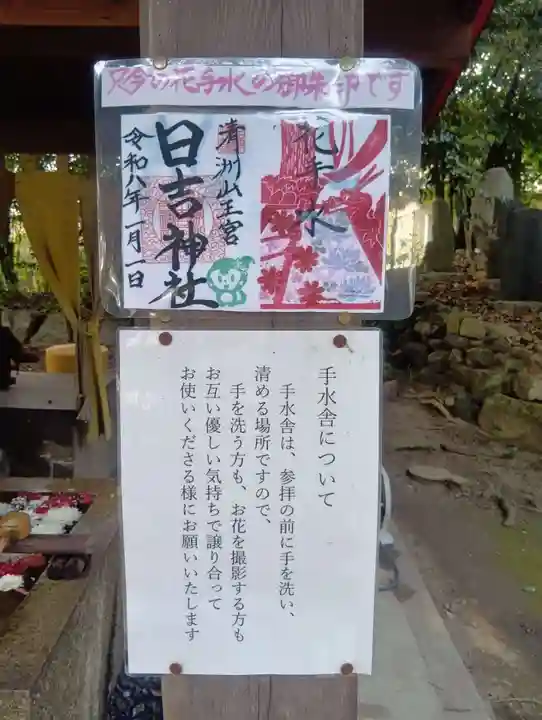 只今の花手水の御朱印です
花手水
清洲山王宮
日吉神社
令和八年一月一日
手水舎について
手水舎は、参拝の前に手を洗い、
清める場所ですので、
手を洗う方も、お花を撮影する方も
お互い優しい気持ちで譲り合って
お使いくださる様にお願いいたします